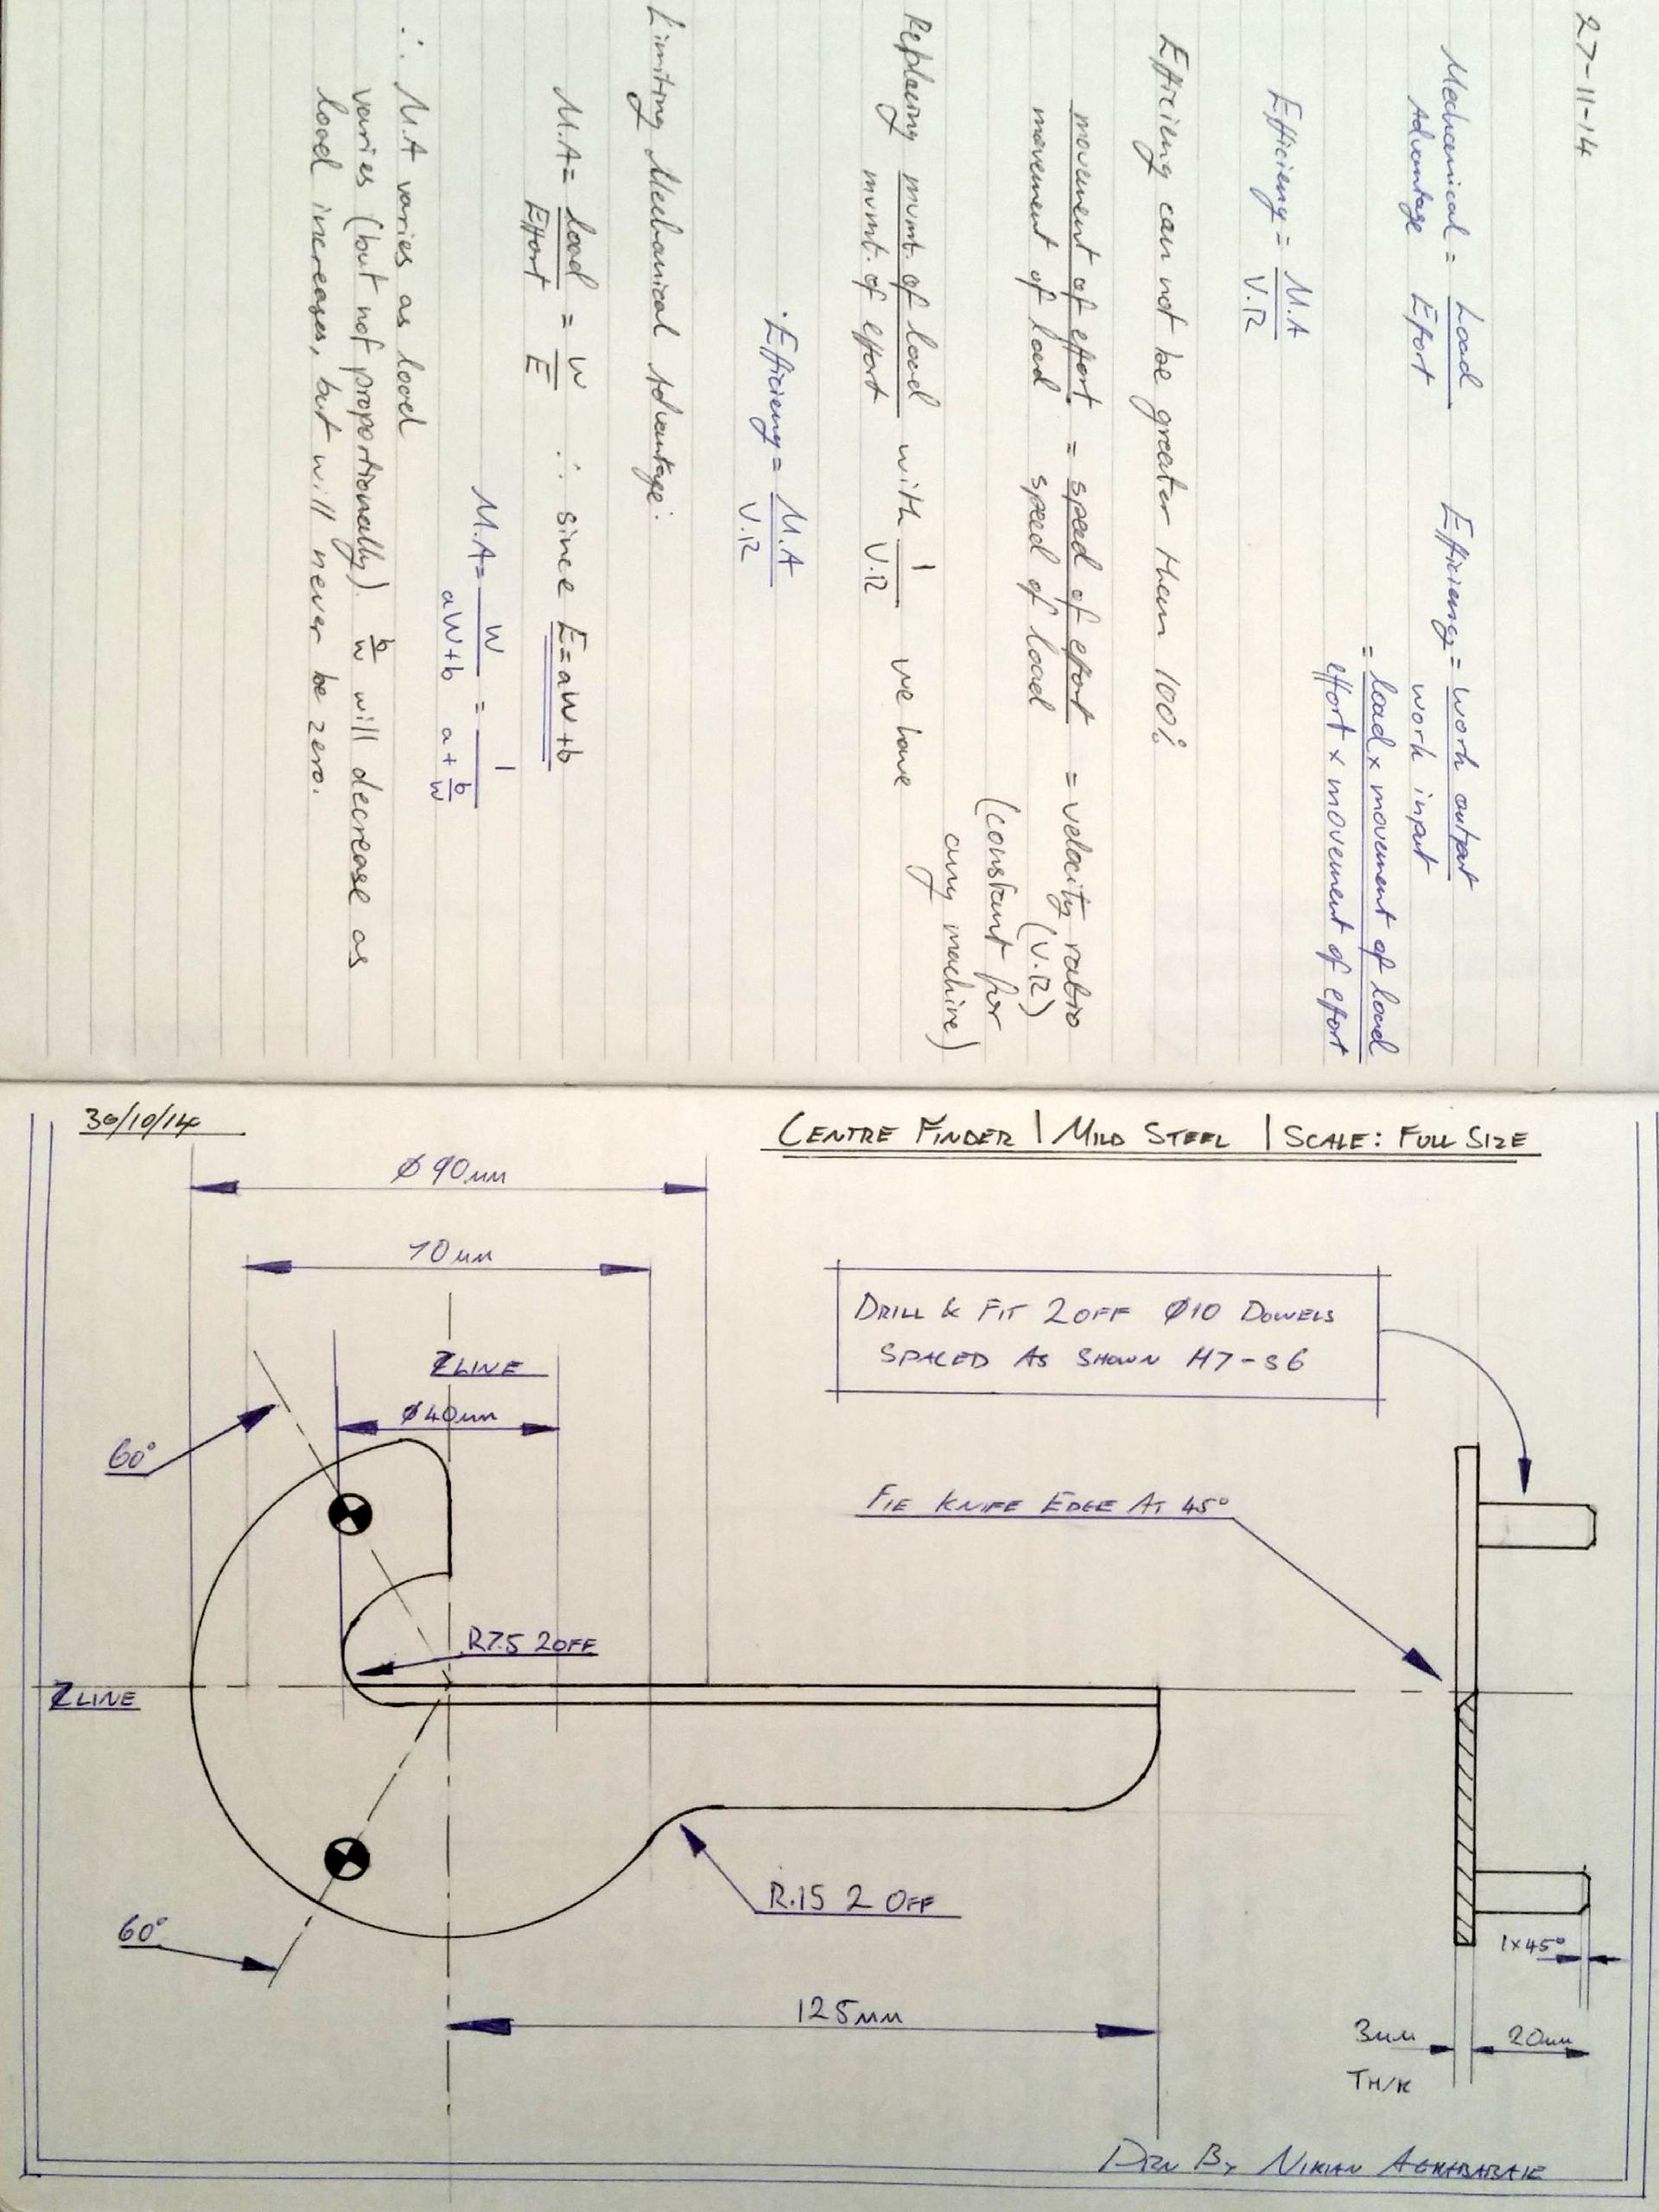 27-11-14
Mechanical = Load
Advantage Effort
Efficiency = work output
work input
= load × movement of load
effort × movement of effort
Efficiency = M.A
V.R
Efficiency can not be greater than 100%
movement of effort = speed of effort = velocity ratio
movement of load speed of load (V.R)
(constant for
any machine)
Replacing mvmt. of load with 1 we have
mvmt. of effort V.R
Efficiency = M.A
V.R
Limiting Mechanical Advantage:
M.A = load = W ∴ since E=aW+b
Effort E
M.A = W = 1
aW+b a + b/W
∴ M.A varies as load
varies (but not proportionally). b/W will decrease as
load increases, but will never be zero.
30/10/14
CENTRE FINDER | MILD STEEL | SCALE: FULL SIZE
Ø90mm
70mm
ZLINE
Ø40mm
60°
DRILL & FIT 2OFF Ø10 DOWELS
SPACED AS SHOWN H7-s6
FIE KNIFE EDGE AT 45°
R7.5 2OFF
ZLINE
R.15 2 OFF
60°
125mm
1×45°
3mm
20mm
TH/K
DRN BY NIKIAN AGHABABAIE